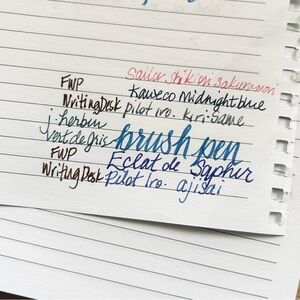 Sailor Shikiori Sakuramori
FWP Kaweco Midnight blue
Writing Desk pilot iro. kiri-same
j. herbin
vert de gris brush pen
FWP Eclat de Saphir
Writing Desk Pilot Iro. ajisai